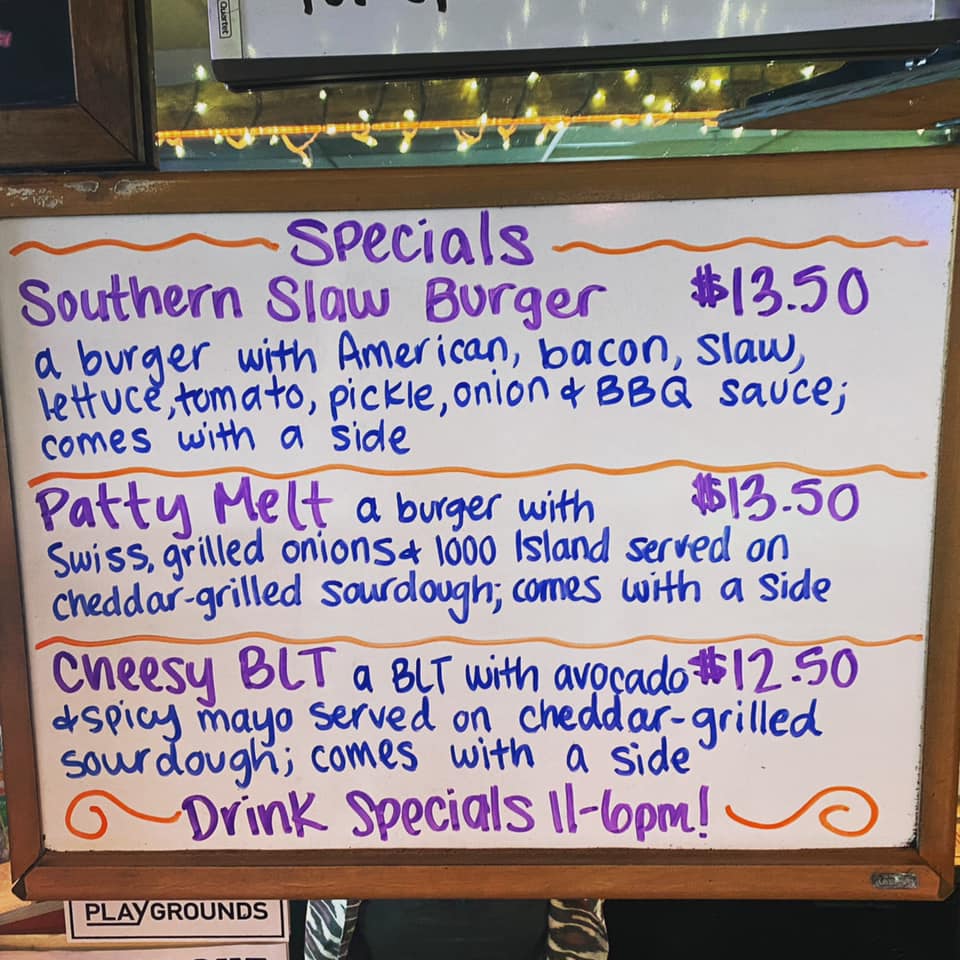 Quartet
Specials
Southern Slaw Burger $13.50
a burger with American, bacon, slaw,
lettuce, tomato, pickle, onion & BBQ sauce;
comes with a side
Patty Melt a burger with $13.50
Swiss, grilled onions & 1000 Island served on
cheddar-grilled sourdough; comes with a side
Cheesy BLT a BLT with avocado $12.50
& spicy mayo served on cheddar-grilled
sourdough; comes with a side
Drink Specials 11-6pm!
PLAYGROUNDS